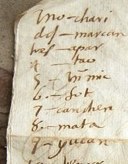 Ino - chari
dos - marcan
tres - apar
4 - tau
5 - himic
6 - sot
7 - canchen
8 - mata
9 - yucan